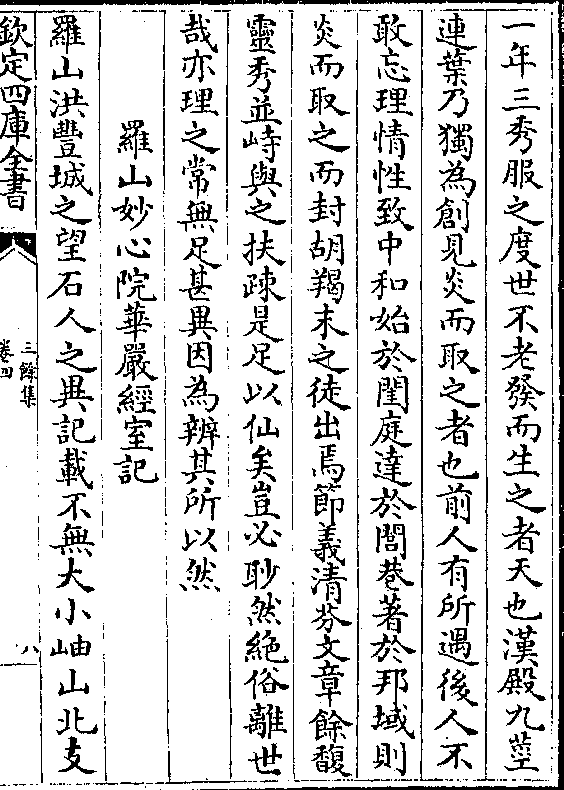 一年三秀服之度世不老發而生之者天也漢殿九莖
連葉乃獨為創見炎而取之者也前人有所遇後人不
敢忘理情性致中和始於閨庭達於閭巷著於邦域則
炎而取之而封胡羯末之徒出焉節義清芬文章餘馥
靈秀並峙與之扶疎是足以仙矣豈必眇然絶俗離世
哉亦理之常無足甚異因為辨其所以然
羅山妙心院華嚴經室記
羅山洪豐城之望石人之異記載不無大小岫山北支
欽定四庫全書
三餘集
卷四
八